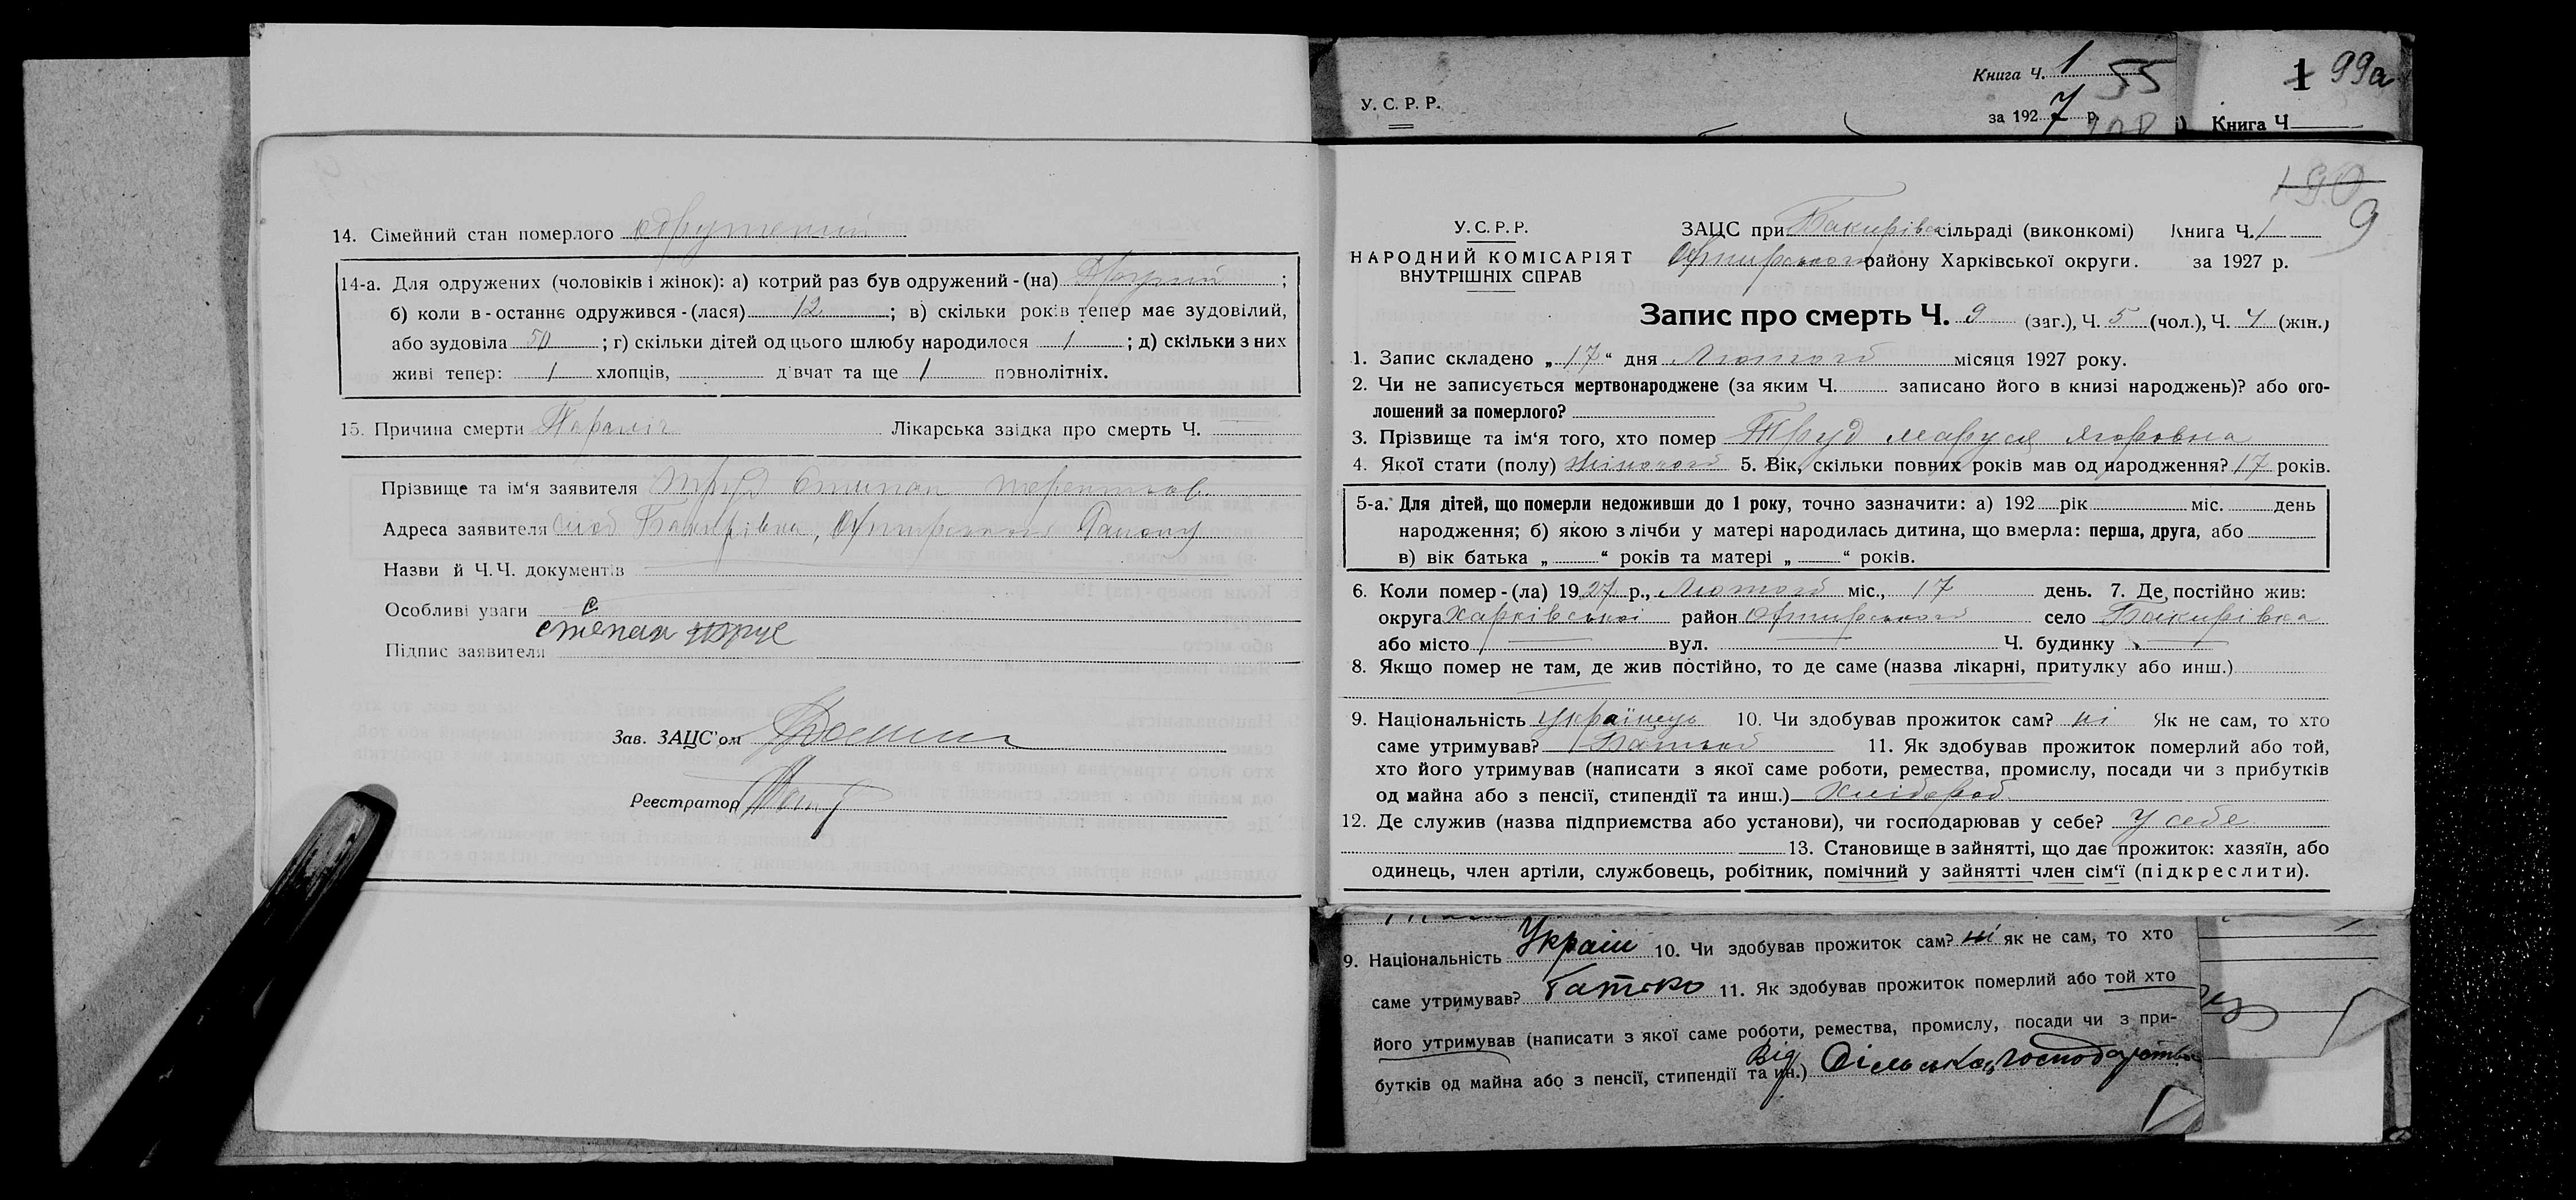 14. Сімейний стан померлого одружений
14-а. Для одружених (чоловіків і жінок): а) котрий раз був одружений - (на) Другий ;
б) коли в - останнє одружився - (лася) 12 ; в) скільки років тепер має зудовілий,
або зудовіла 50 ; г) скільки дітей од цього шлюбу народилося 1 ; д) скільки з них
живі тепер: 1 хлопців, дівчат та ще 1 повнолітніх.
15. Причина смерти Параліч Лікарська звідка про смерть Ч.
Прізвище та ім'я заявителя Труд Степан
Адреса заявителя Бакирівка, Охтирського Району
Назви й Ч.Ч. документів
Особливі уваги
степан
Підпис заявителя
Зав. ЗАЦС'ом
Реєстратор
Книга Ч. 1 55
У. С. Р. Р.
за 1927 р.
1 99а
Книга Ч
190
9
У. С. Р. Р.
НАРОДНИЙ КОМІСАРІЯТ
ВНУТРІШНІХ СПРАВ
ЗАЦС при Бакирівс сільраді (виконкомі) Книга Ч. 1
Охтирського району Харківської округи. за 1927 р.
Запис про смерть Ч. 9 (заг.), Ч. 5 (чол.), Ч. 4 (жін.)
1. Запис складено „ 17 “ дня Лютого місяця 1927 року.
2. Чи не записується мертвонароджене (за яким Ч. записано його в книзі народжень)? або ого-
лошений за померлого?
3. Прізвище та ім'я того, хто помер Труд маруся Ягоровна
4. Якої стати (полу) жіночого 5. Вік, скільки повних років мав од народження? 17 років.
5-а. Для дітей, що померли недоживши до 1 року, точно зазначити: а) 192 рік міс. день
народження; б) якою з лічби у матері народилась дитина, що вмерла: перша, друга, або
в) вік батька „ “ років та матері „ “ років.
6. Коли помер - (ла) 1927 р., Лютого міс., 17 день. 7. Де постійно жив:
округа Харківської район Охтирського село Бакирівка
або місто вул. Ч. будинку
8. Якщо помер не там, де жив постійно, то де саме (назва лікарні, притулку або инш.)
9. Національність українець 10. Чи здобував прожиток сам? ні Як не сам, то хто
саме утримував? Батько 11. Як здобував прожиток померлий або той,
хто його утримував (написати з якої саме роботи, ремества, промислу, посади чи з прибутків
од майна або з пенсії, стипендії та инш.) Хлібороб
12. Де служив (назва підприємства або установи), чи господарював у себе? у себе
13. Становище в зайнятті, що дає прожиток: хазяїн, або
одинець, член артіли, службовець, робітник, помічний у зайнятті член сім'ї (підкреслити).
9. Національність Україн 10. Чи здобував прожиток сам? ні як не сам, то хто
саме утримував? батько 11. Як здобував прожиток померлий або той хто
його утримував (написати з якої саме роботи, ремества, промислу, посади чи з при-
бутків од майна або з пенсії, стипендії та ин.) Від Сільська господарства